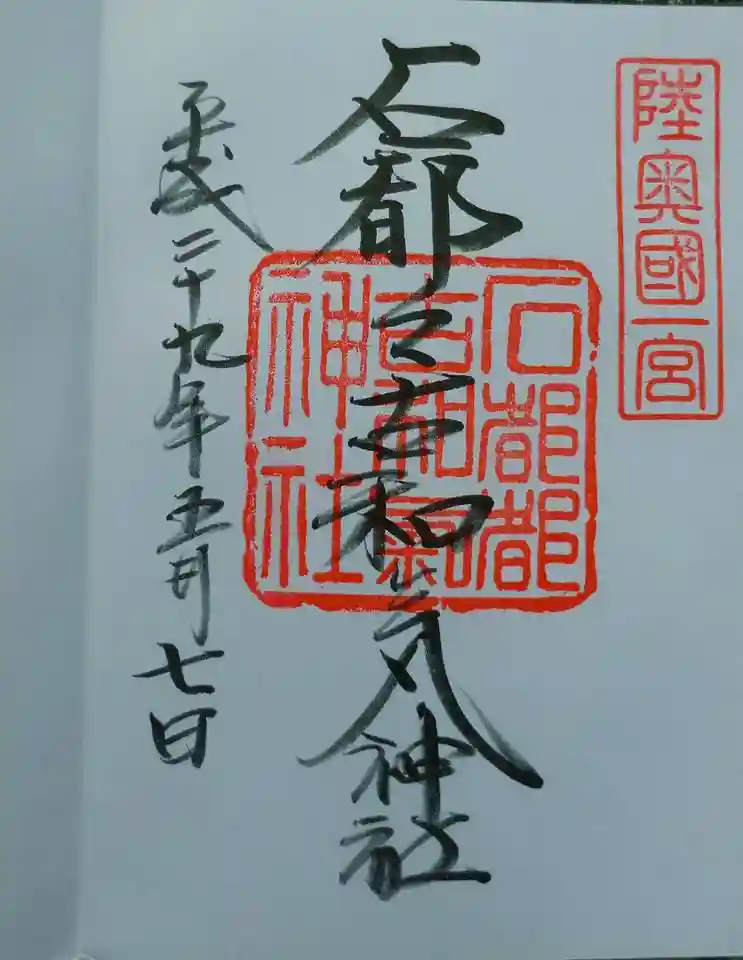 陸奥國一宮
石都々古和気神社
石都都古和氣神社
平成二十九年五月七日